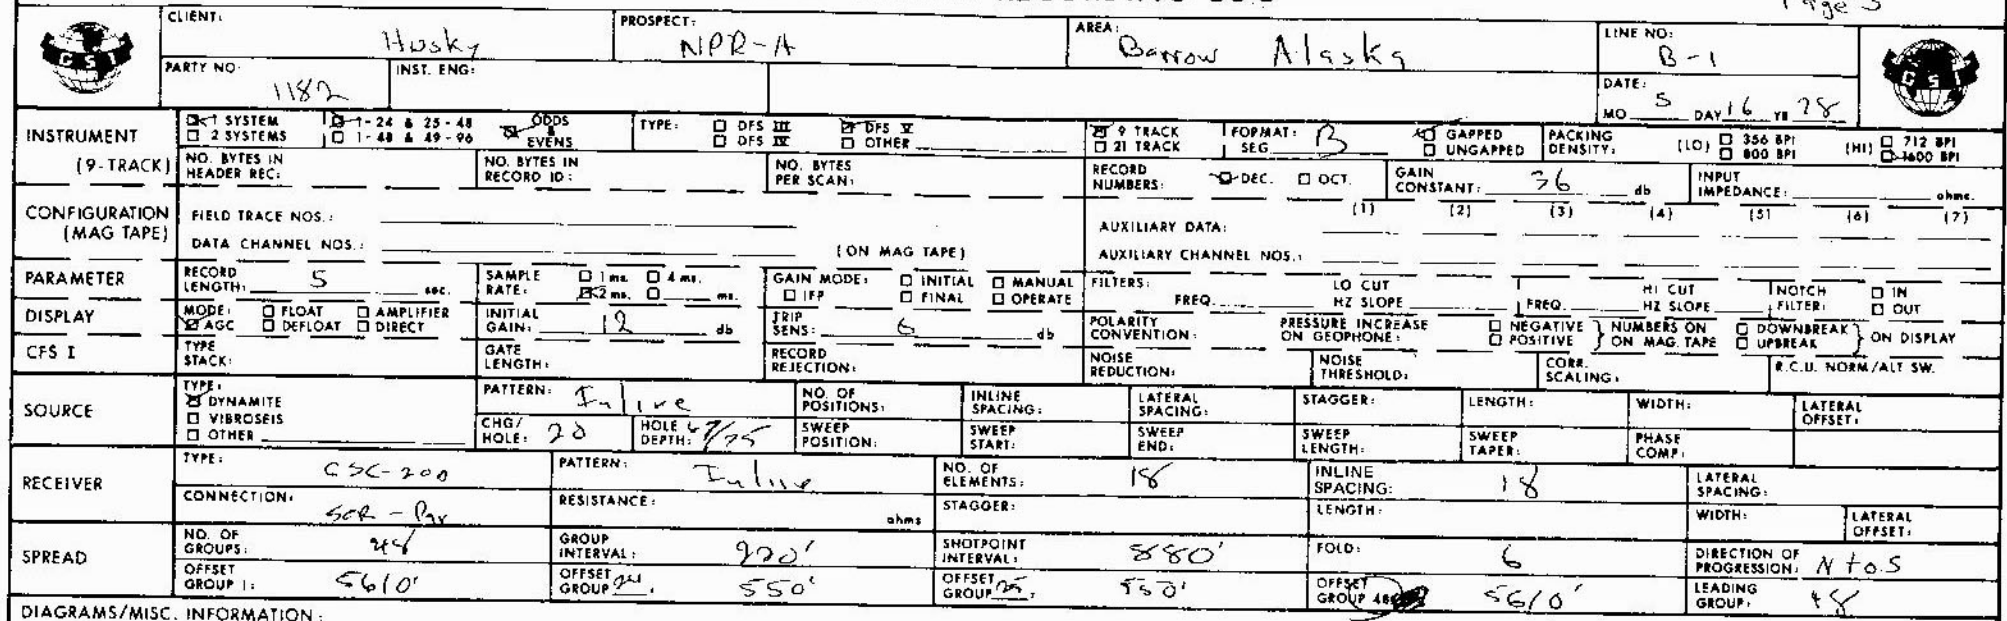 Page 5
CLIENT: Husky PROSPECT: NPR-A AREA: Barrow Alaska LINE NO: B-1
GSI GSI
PARTY NO: 1182 INST. ENG: DATE: MO 5 DAY 16 YR 78
INSTRUMENT (9-TRACK)
☒ 1 SYSTEM ☒ 1-24 & 25-48 ☒ ODDS & EVENS TYPE: ☐ DFS III ☒ DFS V ☒ 9 TRACK FORMAT: SEG B ☒ GAPPED PACKING DENSITY: (LO) ☐ 356 BPI (HI) ☐ 712 BPI
☐ 2 SYSTEMS ☐ 1-48 & 49-96 ☐ DFS IV ☐ OTHER ☐ 21 TRACK ☐ UNGAPPED ☐ 800 BPI ☒ 1600 BPI
NO. BYTES IN HEADER REC: NO. BYTES IN RECORD ID: NO. BYTES PER SCAN: RECORD NUMBERS: ☒ DEC. ☐ OCT. GAIN CONSTANT: 36 db INPUT IMPEDANCE: ohms.
CONFIGURATION (MAG TAPE)
FIELD TRACE NOS.: AUXILIARY DATA: (1) (2) (3) (4) (5) (6) (7)
DATA CHANNEL NOS.: (ON MAG TAPE) AUXILIARY CHANNEL NOS.:
PARAMETER RECORD LENGTH: 5 sec. SAMPLE RATE: ☐ 1 ms. ☐ 4 ms. ☒ 2 ms. ☐ ms. GAIN MODE: ☐ INITIAL ☐ MANUAL ☐ IFP ☐ FINAL ☐ OPERATE FILTERS: LO CUT FREQ. HZ SLOPE HI CUT FREQ. HZ SLOPE NOTCH FILTER: ☐ IN ☐ OUT
DISPLAY MODE: ☐ FLOAT ☐ AMPLIFIER ☒ AGC ☐ DEFLOAT ☐ DIRECT INITIAL GAIN: 12 db TRIP SENS: 6 db POLARITY CONVENTION: PRESSURE INCREASE ON GEOPHONE: ☐ NEGATIVE ☐ POSITIVE } NUMBERS ON ON MAG. TAPE ☐ DOWNBREAK ☐ UPBREAK } ON DISPLAY
CFS I TYPE STACK: GATE LENGTH: RECORD REJECTION: NOISE REDUCTION: NOISE THRESHOLD: CORR. SCALING: R.C.U. NORM/ALT SW.
SOURCE TYPE: ☒ DYNAMITE ☐ VIBROSEIS ☐ OTHER
PATTERN: Inline NO. OF POSITIONS: INLINE SPACING: LATERAL SPACING: STAGGER: LENGTH: WIDTH: LATERAL OFFSET:
CHG/HOLE: 20 HOLE DEPTH: 67/75 SWEEP POSITION: SWEEP START: SWEEP END: SWEEP LENGTH: SWEEP TAPER: PHASE COMP:
RECEIVER TYPE: GSC-200 PATTERN: Inline NO. OF ELEMENTS: 18 INLINE SPACING: 18 LATERAL SPACING:
CONNECTION: SER-Par RESISTANCE: ohms STAGGER: LENGTH: WIDTH: LATERAL OFFSET:
SPREAD NO. OF GROUPS: 48 GROUP INTERVAL: 220' SHOTPOINT INTERVAL: 880' FOLD: 6 DIRECTION OF PROGRESSION: N to S
OFFSET GROUP 1: 5610' OFFSET GROUP 24: 550' OFFSET GROUP 25: 550' OFFSET GROUP 48 5610' LEADING GROUP: 48
DIAGRAMS/MISC. INFORMATION: